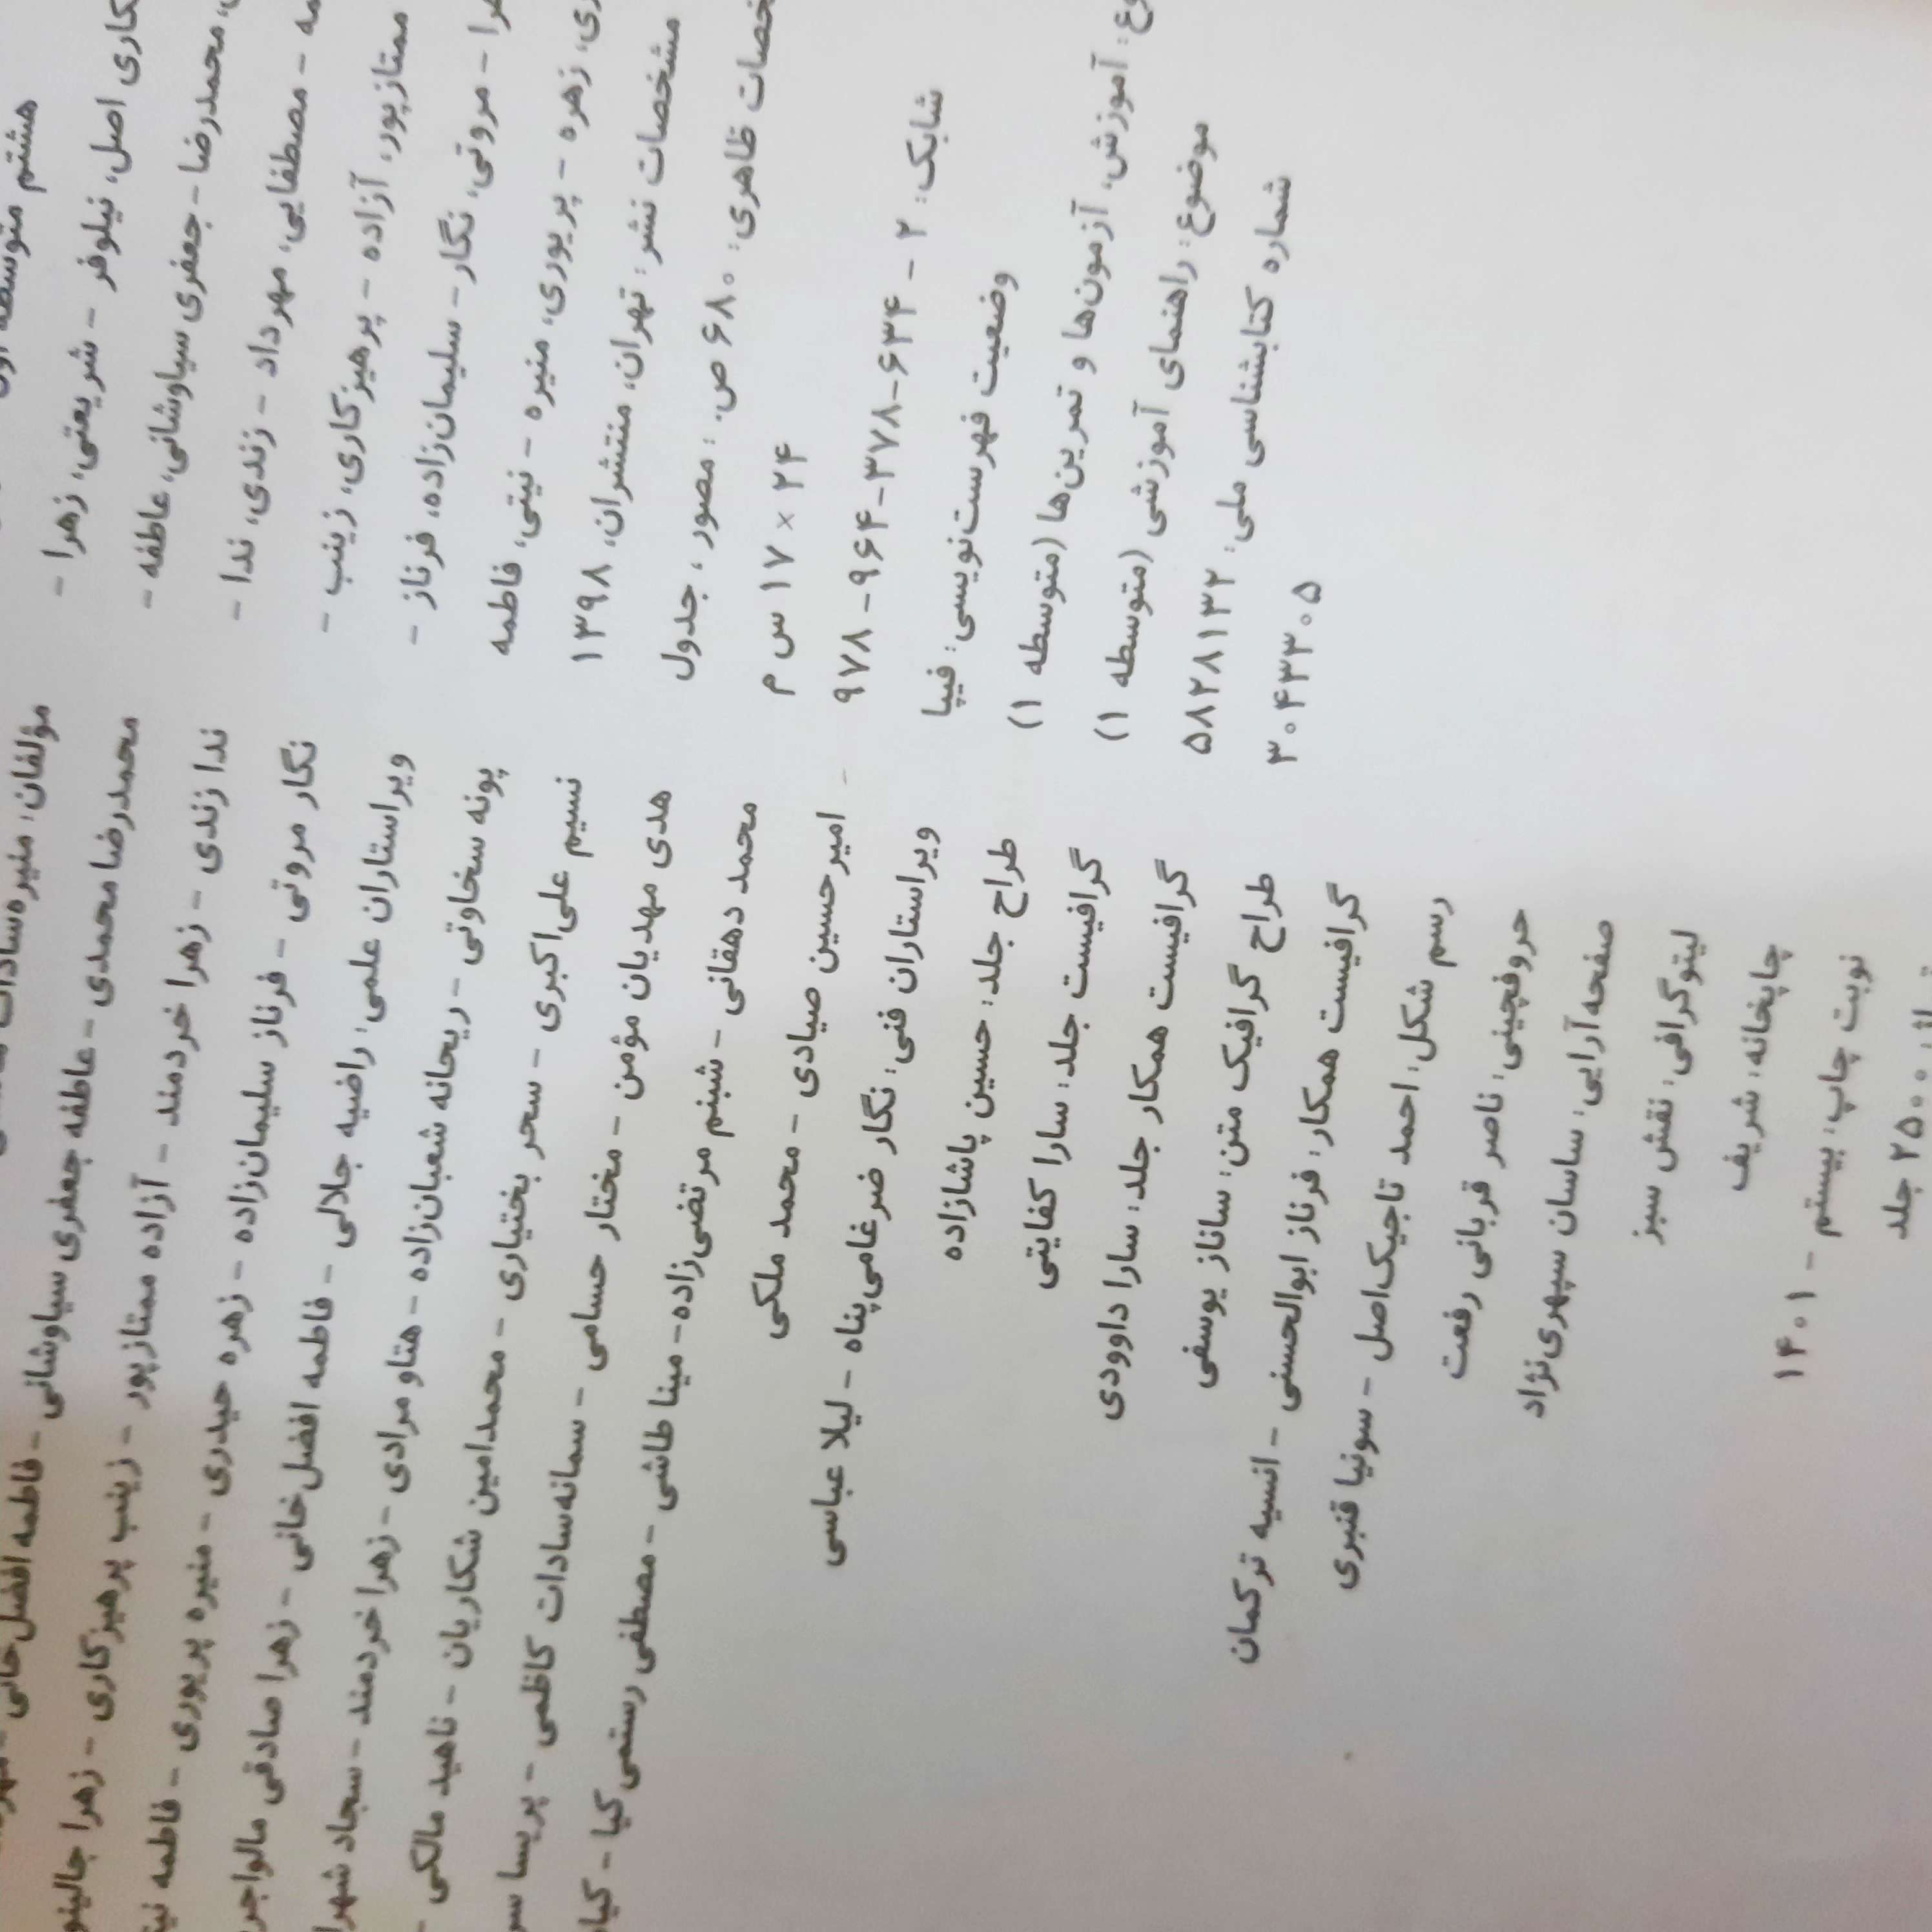 هشتم متوسطه
کاری اصل، نیلوفر - شریعتی، زهرا -
محمدرضا - جعفری سیاوشانی، عاطفه -
مه - مصطفایی، مهرداد - زندی، ندا -
ممتازپور، آزاده - پرهیزکاری، زینب -
را - مروتی، نگار - سلیمان‌زاده، فرناز -
ری، زهره - پریوری، منیره - نیتی، فاطمه
مشخصات نشر: تهران، منتشران، ۱۳۹۸
خصات ظاهری: ۶۸۰ ص. : مصور، جدول
۲۴ × ۱۷ س م
شابک: ۲ - ۶۳۴-۳۷۸-۹۶۴ - ۹۷۸
وضعیت فهرست‌نویسی: فیپا
وع: آموزش، آزمون‌ها و تمرین‌ها (متوسطه ۱)
موضوع: راهنمای آموزشی (متوسطه ۱)
شماره کتابشناسی ملی: ۵۸۲۸۱۳۲
۳۰۴۳۳۰۵
مؤلفان: منیره‌سادات
محمدرضا محمدی - عاطفه جعفری سیاوشانی - فاطمه افضل‌خانی -
ندا زندی - زهرا خردمند - آزاده ممتازپور - زینب پرهیزکاری - زهرا
نگار مروتی - فرناز سلیمان‌زاده - زهره حیدری - منیره پریوری - فاطمه
ویراستاران علمی: راضیه جلالی - فاطمه افضل‌خانی - زهرا صادقی
پونه سخاوتی - ریحانه شعبان‌زاده - هتاو مرادی - زهرا خردمند - سجاد
نسیم علی‌اکبری - سحر بختیاری - محمدامین شکاریان - ناهید مالکی -
هدی مهدیان مؤمن - مختار حسامی - سمانه‌سادات کاظمی - پریسا
محمد دهقانی - شبنم مرتضی‌زاده - مینا طاشی - مصطفی رستمی کیا -
امیرحسین صیادی - محمد ملکی
ویراستاران فنی: نگار ضرغامی‌پناه - لیلا عباسی
طراح جلد: حسین پاشازاده
گرافیست جلد: سارا کفایتی
گرافیست همکار جلد: سارا داوودی
طراح گرافیک متن: ساناز یوسفی
گرافیست همکار: فرناز ابوالحسنی - انسیه ترکمان
رسم شکل: احمد تاجیک‌اصل - سونیا قنبری
حروفچینی: ناصر قربانی رفعت
صفحه‌آرایی: ساسان سپهری‌نژاد
لیتوگرافی: نقش سبز
چاپخانه: شریف
نوبت چاپ: بیستم - ۱۴۰۱
۲۵۰۰ جلد